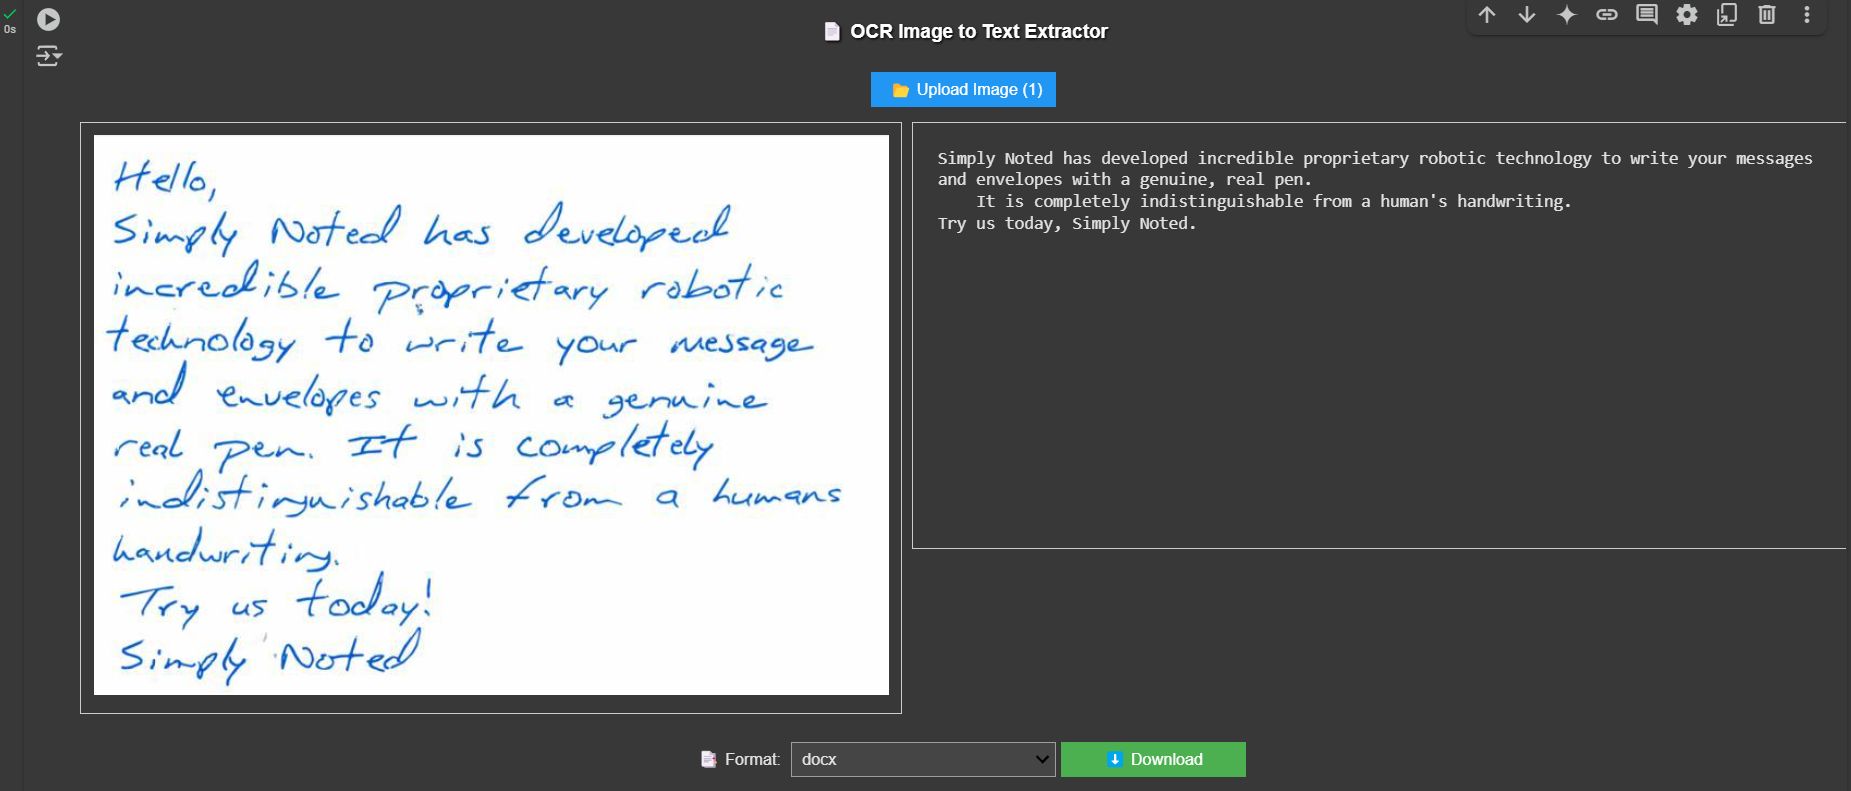 0s
📄 OCR Image to Text Extractor
📂 Upload Image (1)
Hello,
Simply Noted has developed
incredible proprietary robotic
technology to write your message
and envelopes with a genuine
real pen. It is completely
indistinguishable from a humans
handwriting.
Try us today!
Simply Noted
Simply Noted has developed incredible proprietary robotic technology to write your messages
and envelopes with a genuine, real pen.
It is completely indistinguishable from a human's handwriting.
Try us today, Simply Noted.
Format: docx
Download